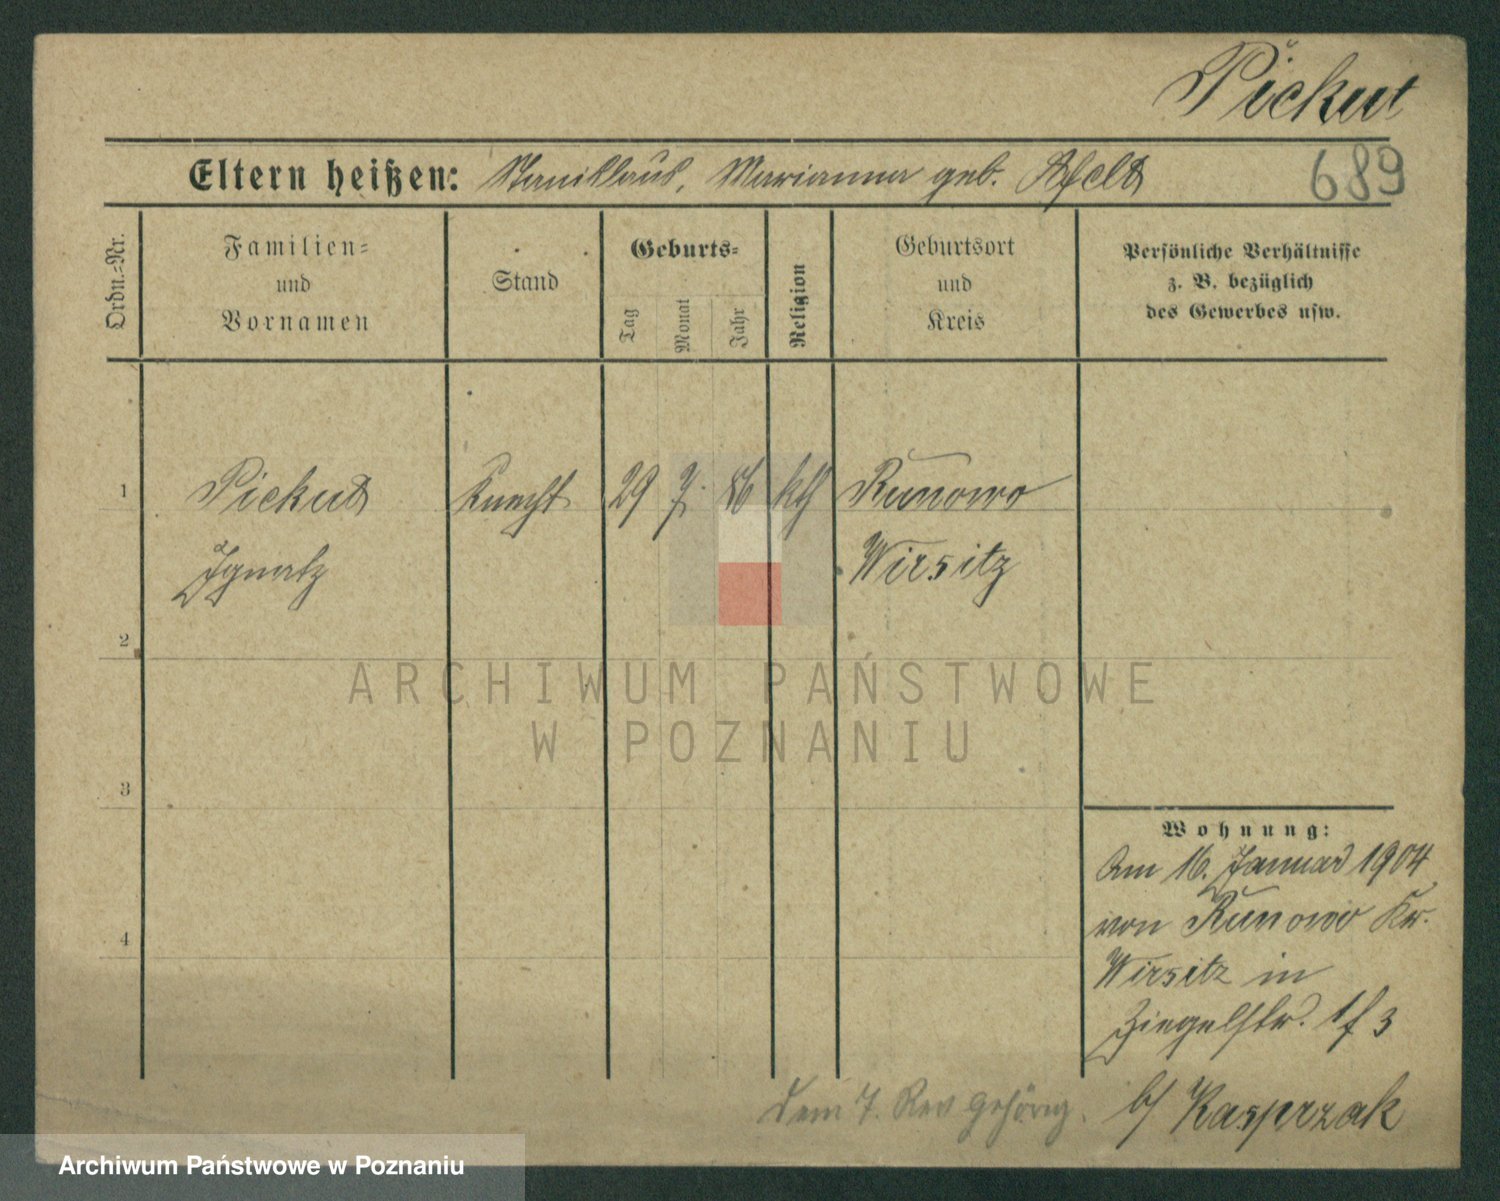 Pickut
Eltern heißen: Stanislaus, Marianna geb. Apelt
689
Ordn.=Nr.
Familien=
und
Vornamen
Stand
Geburts=
Tag
Monat
Jahr
Religion
Geburtsort
und
Kreis
Persönliche Verhältnisse
z. B. bezüglich
des Gewerbes usw.
1 Pickut Knecht 29 7. 86 kth Runowo
Ignatz Wirsitz
2
3
4
Wohnung:
Am 16. Januar 1904
von Runowo Kr.
Wirsitz in
Ziegelstr. 1f 3
b/ Kasprzak
Dem 7. Rev gehörig.
ARCHIWUM PAŃSTWOWE
W POZNANIU
Archiwum Państwowe w Poznaniu